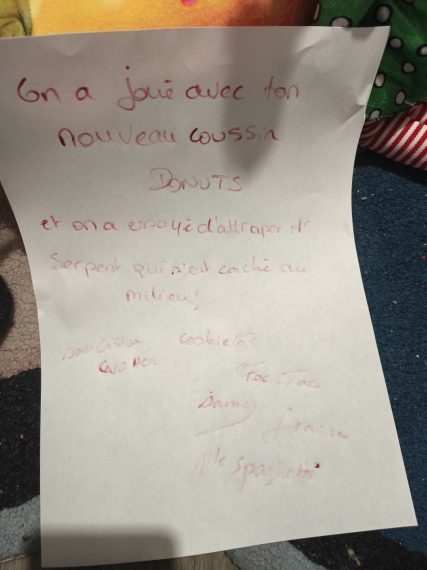 On a joué avec ton
nouveau coussin
DONUTS
et on a essayé d'attraper le
Serpent qui s'est caché au
milieu!
saucisson cookie
Croc Croc
Sammy
fraise
Mlle spaghetti